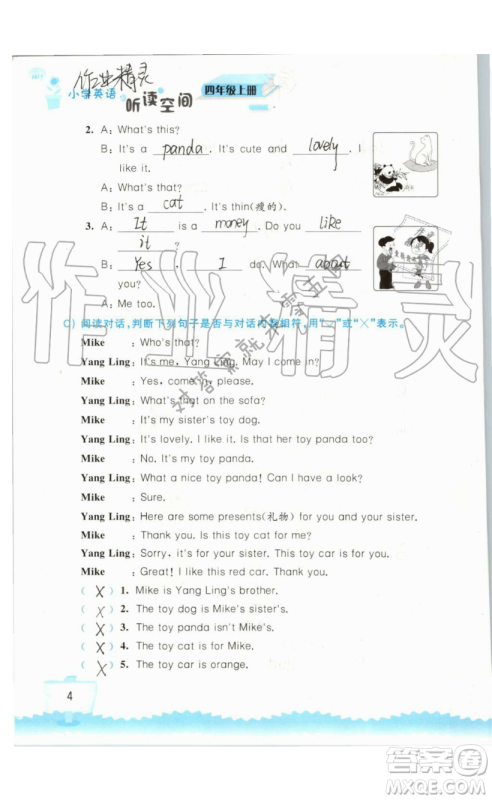 作业精灵
小学英语
听读空间
四年级上册
2. A: What's this?
B: It's a panda. It's cute and lovely. I like it.
A: What's this?
B: It's a cat. It's thin(瘦的).
3. A: It is a money. Do you like it?
B: Yes, I do. What about you?
A: Me too.
C) 阅读对话,判断下列句子是否与对话内容相符,用“✓”或“×”表示。
Mike : Who's that?
Yang Ling: It's me, Yang Ling. May I come in?
Mike : Yes, come in, please.
Yang Ling: What's that on the sofa?
Mike : It's my sister's toy dog.
Yang Ling: It's lovely. I like it. Is that her toy panda too?
Mike : No. It's my toy panda.
Yang Ling: What a nice toy panda! Can I have a look?
Mike : Sure.
Yang Ling: Here are some presents(礼物) for you and your sister.
Mike : Thank you. Is this toy cat for me?
Yang Ling: Sorry, it's for your sister. This toy car is for you.
Mike : Great! I like this red car. Thank you.
( × ) 1. Mike is Yang Ling's brother.
( × ) 2. The toy dog is Mike's sister's.
( × ) 3. The toy panda isn't Mike's.
( × ) 4. The toy cat is for Mike.
( × ) 5. The toy car is orange.
4
作业精灵
对答案就来零五网
答案圈
MXQE.COM